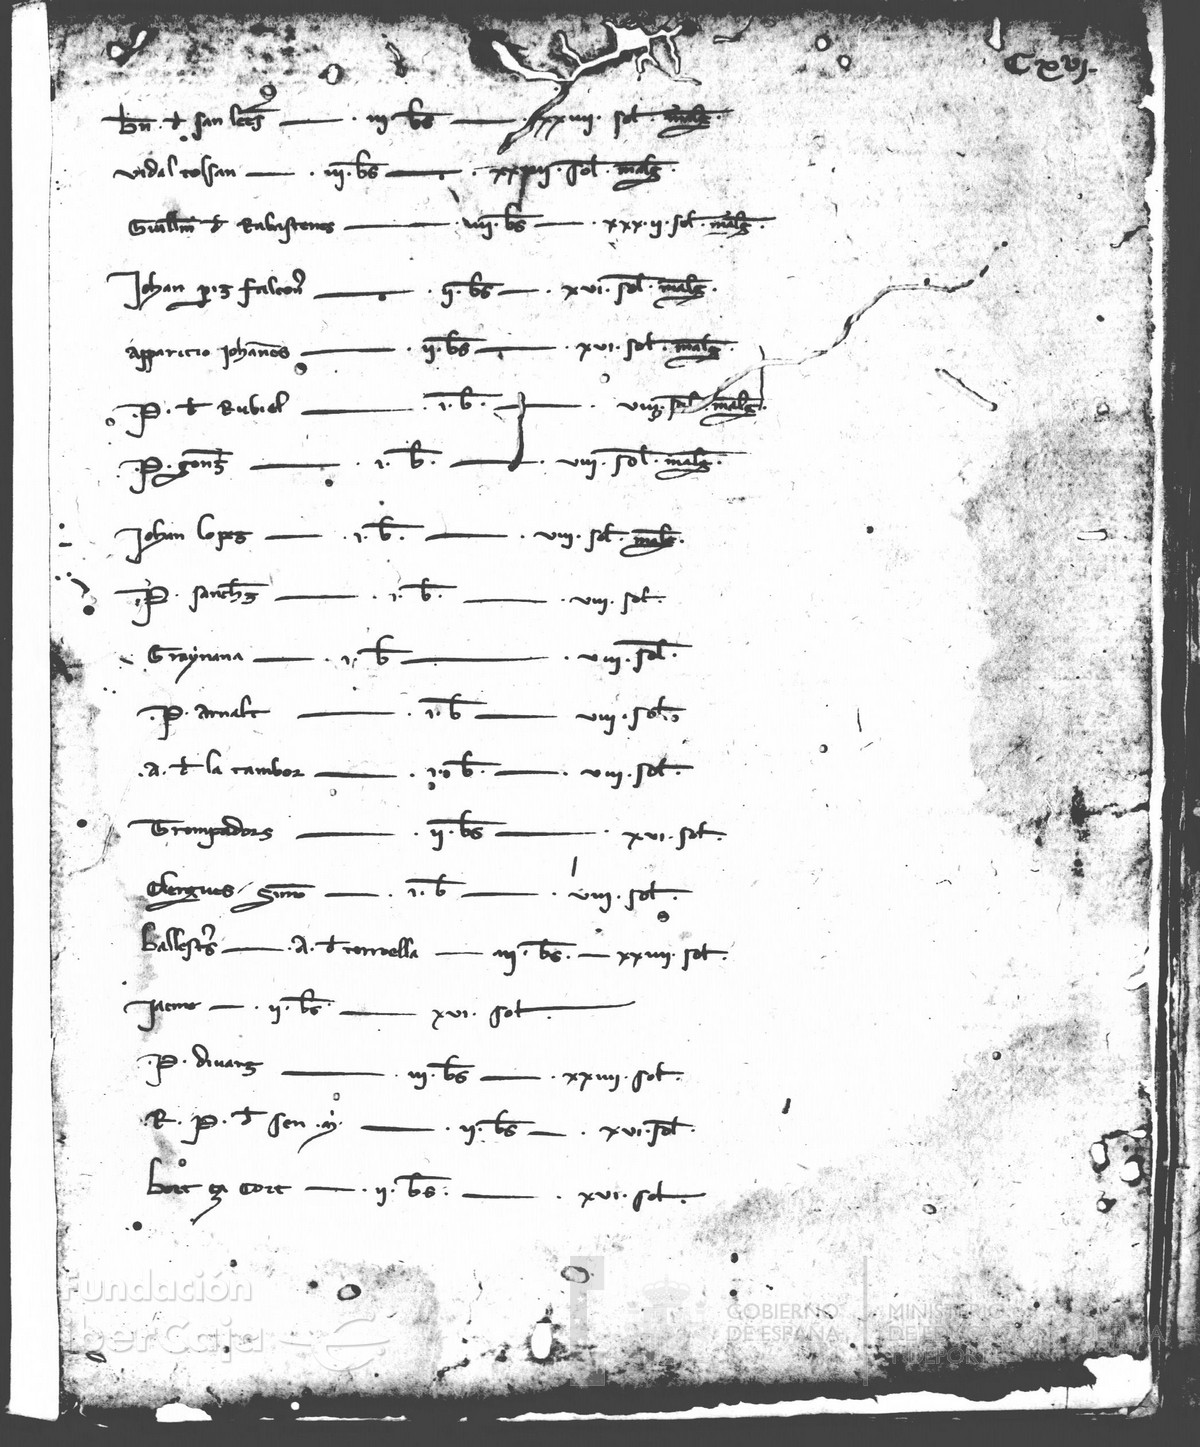 Cxvj.
bn. d san lees — . iij. bs — xxiiij. sol. malg.
vidal colsan — . iiij. bs — . xxxii. sol. malg.
Guillm d Rabastenes — . iiij. bs — . xxx.ij. sol. malg.
Johan perz falcon — . ij. bs — . xvi. sol. malg.
apparicio Johanes — . ij. bs — . xvi. sol. malg.
.P. d Rubiol — . i. b. — . viij. sol. malg.
.P. gonz — . i. b. — . viij. sol. malg.
Johan Lopez — . i. b. — . viij. sol. malg.
.P. sanchz — . i. b. — . viij. sol.
Graynana — . i. b — . viij. sol.
.P. Arnalt — . i. b — viij. sol.
.A. d la cambor — . i. b. — . viij. sol.
Trompadors — . ij. bs — . xvi. sol.
Clergues / Simo — . i. b — . viij. sol.
ballests — .A. d torroella — iij. bs. — xxiiij. sol.
Jacme — . ij. bs. — xvi. sol.
.P. divarz — . iij. bs — . xxiiij. sol.
.R. P. d sen .ij. — . ij. bs — . xvi. sol.
bort ça Cort — . ij. bs. — . xvi. sol.
Fundación
iberCaja
GOBIERNO
DE ESPAÑA
MINISTERIO